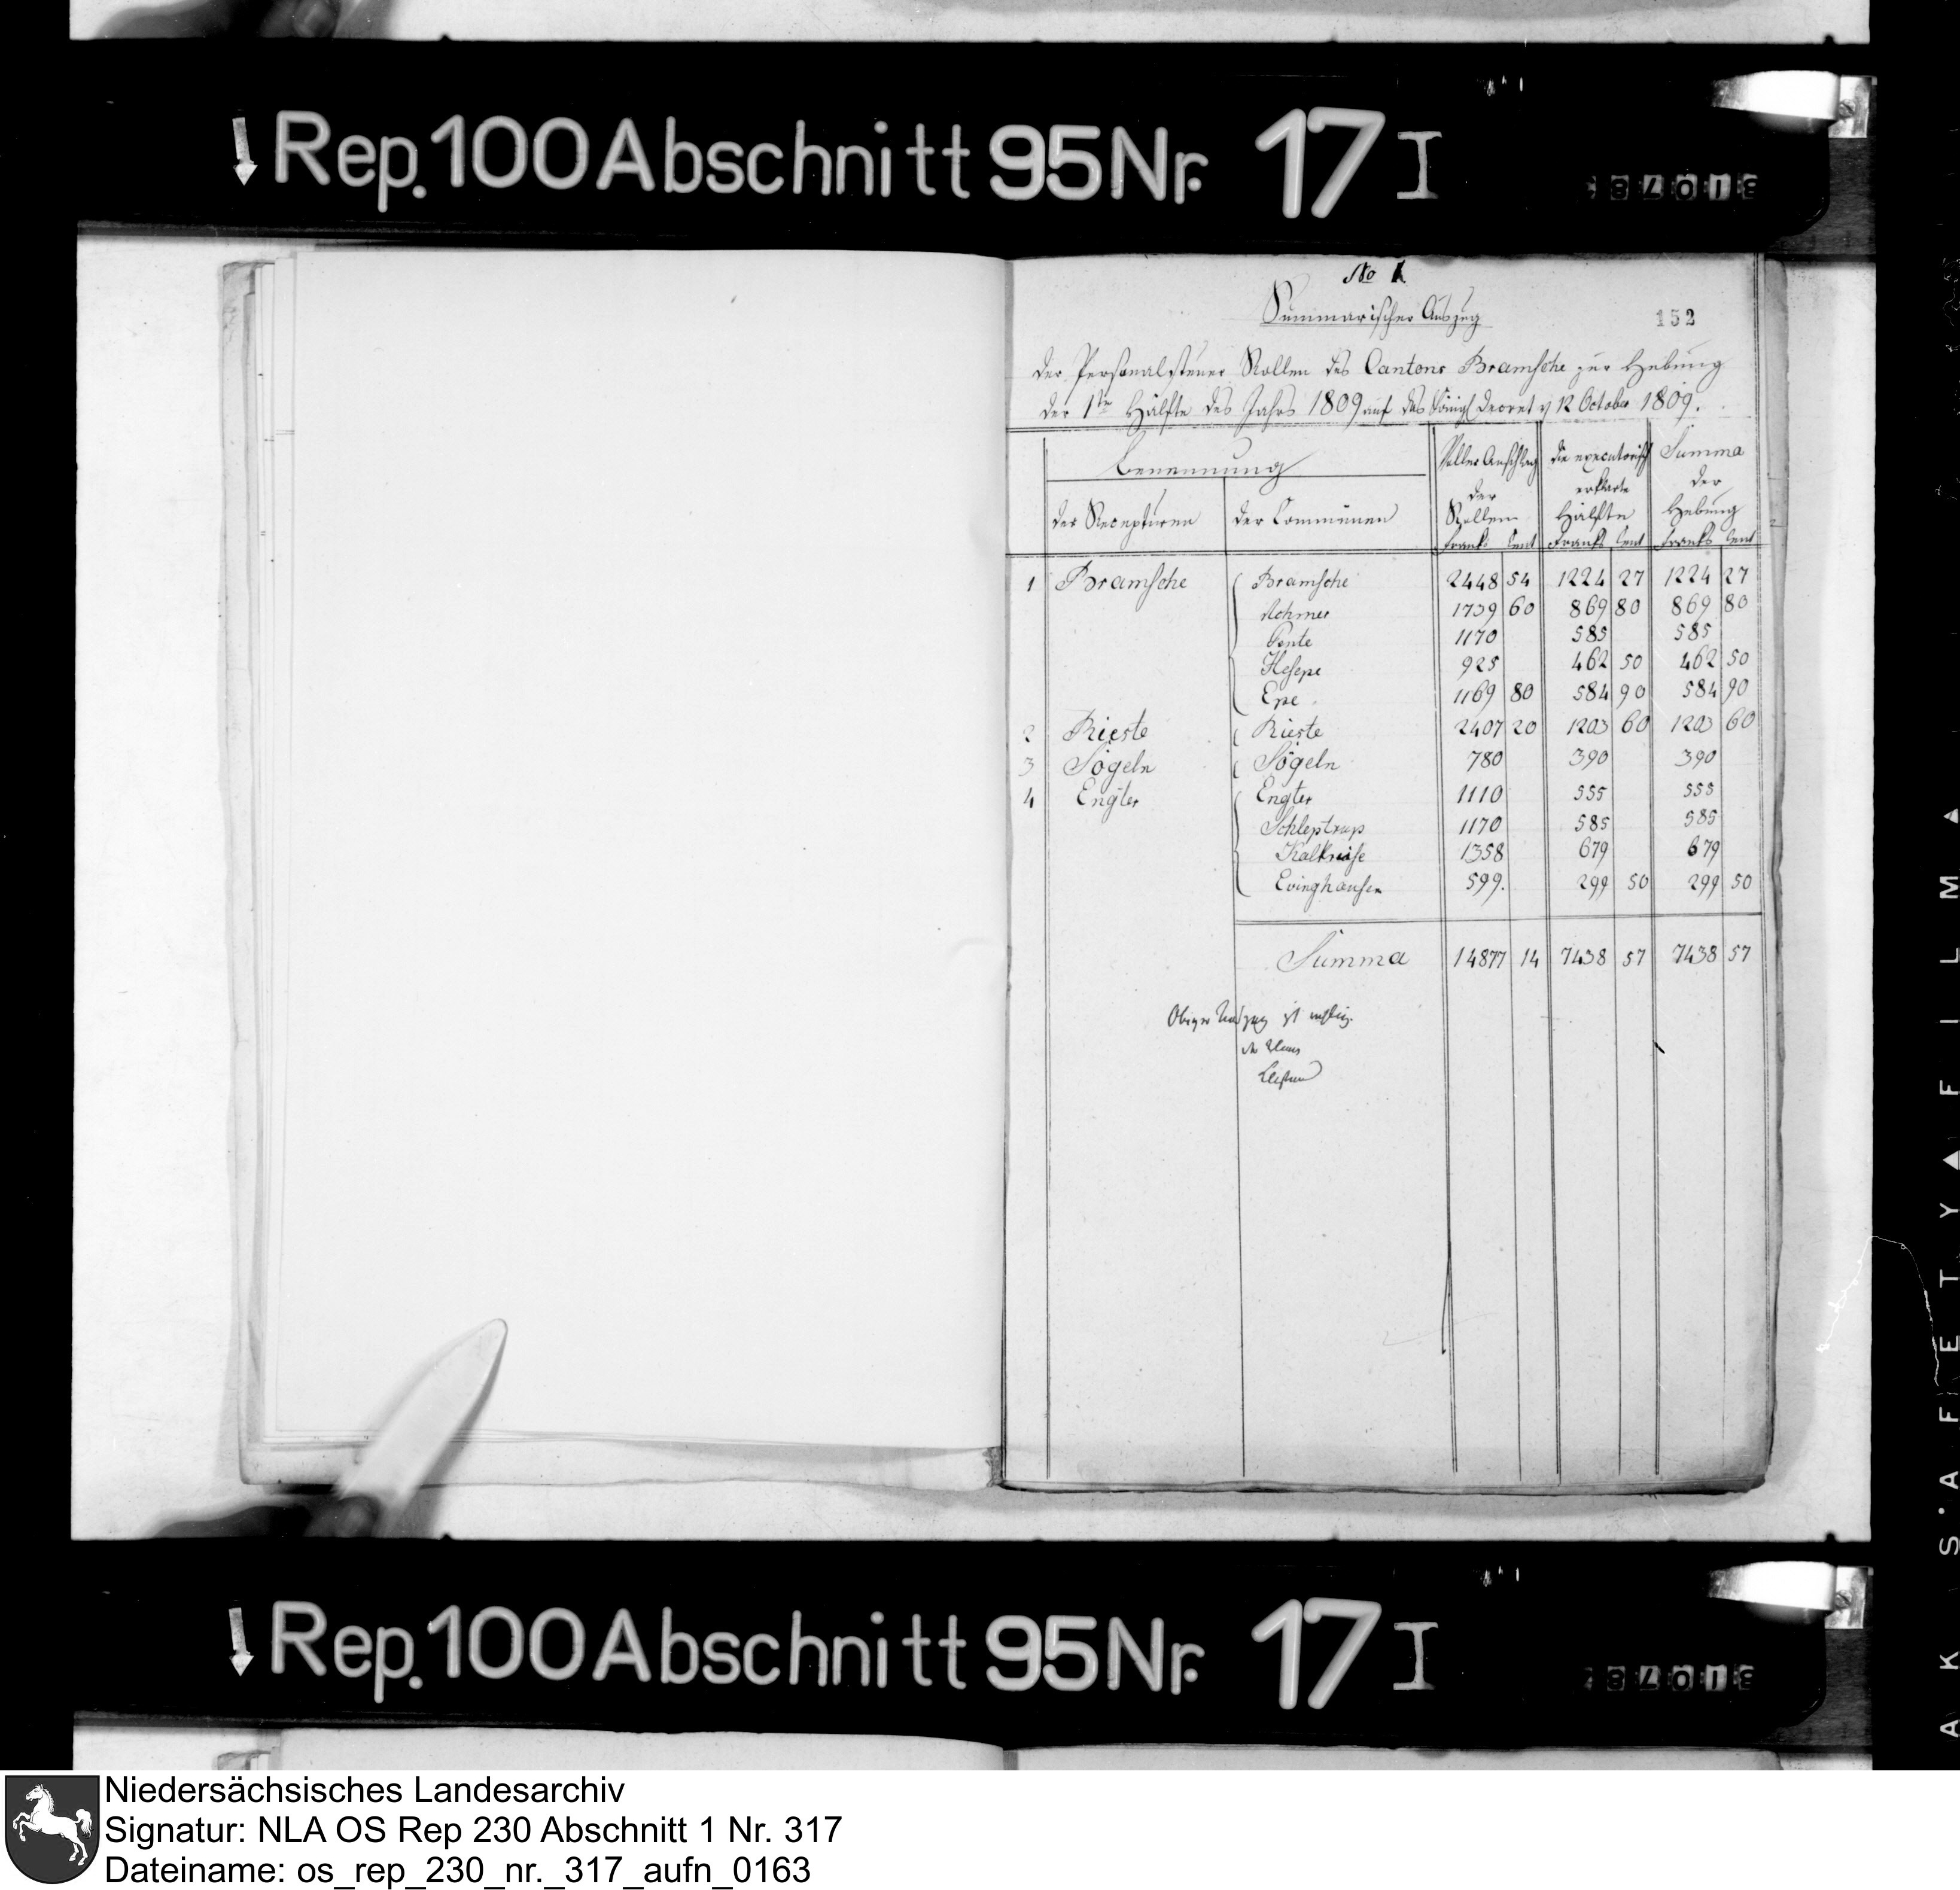 Rep. 100 Abschnitt 95 Nr. 17 I
No 1
Summarischer Auszug
152
der Personalsteuer Rollen des Cantons Bramsche zur Hebung
der 1te Hälfte des Jahrs 1809 auf das Königl Decret v 12 October 1809.
Benennung
Voller Anschlag die executorisch Summa
der erklarte der
der Recepturen der Communen Rollen Hälfte Hebung
Franks Cent Franks Cent Franks Cent
1 Bramsche Bramsche 2448 54 1224 27 1224 27
Achmer 1739 60 869 80 869 80
Pente 1170 585 585
Hesepe 925 462 50 462 50
Epe 1169 80 584 90 584 90
2 Rieste Rieste 2407 20 1203 60 1203 60
3 Sögeln Sögeln 780 390 390
4 Engter Engter 1110 555 555
Schleptrup 1170 585 585
Kalkriese 1358 679 679
Evinghausen 599. 299 50 299 50
Summa 14877 14 7438 57 7438 57
Obiger Auszug ist richtig.
Rep. 100 Abschnitt 95 Nr. 17 I
AK SAFETY FILM
Niedersächsisches Landesarchiv
Signatur: NLA OS Rep 230 Abschnitt 1 Nr. 317
Dateiname: os_rep_230_nr._317_aufn_0163